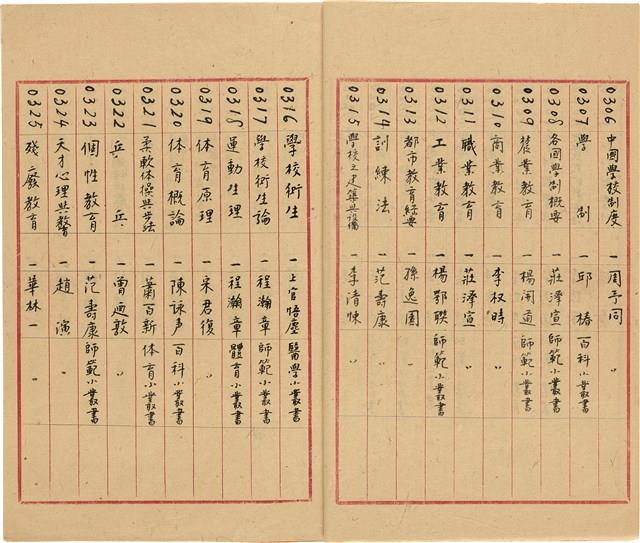 0306 中國學校制度 一 周予同 〃
0307 學制 一 邱椿 百科小叢書
0308 各國學制概要 一 莊澤宣 師範小叢書
0309 農業教育 一 楊開道 師範小叢書
0310 商業教育 一 李权時 〃
0311 職業教育 一 莊澤宣 〃
0312 工業教育 一 楊鄂聯 師範小叢書
0313 都市教育綱要 一 孫逸園 〃
0314 訓練法 一 范壽康 〃
0315 學校之建築與設備 一 李清悚 〃
0316 學校衛生 一 上官悟塵 醫學小叢書
0317 學校衛生論 一 程瀚章 師範小叢書
0318 運動生理 一 程瀚章 體育小叢書
0319 体育原理 一 宋君復 〃
0320 体育概論 一 陳詠声 百科小叢書
0321 柔軟体操與步法 一 蕭百新 体育小叢書
0322 乒乓 一 俞逎敦 〃
0323 個性教育 一 范壽康 師範小叢書
0324 天才心理與教育 一 趙演 〃
0325 殘廢教育 一 華林一 〃